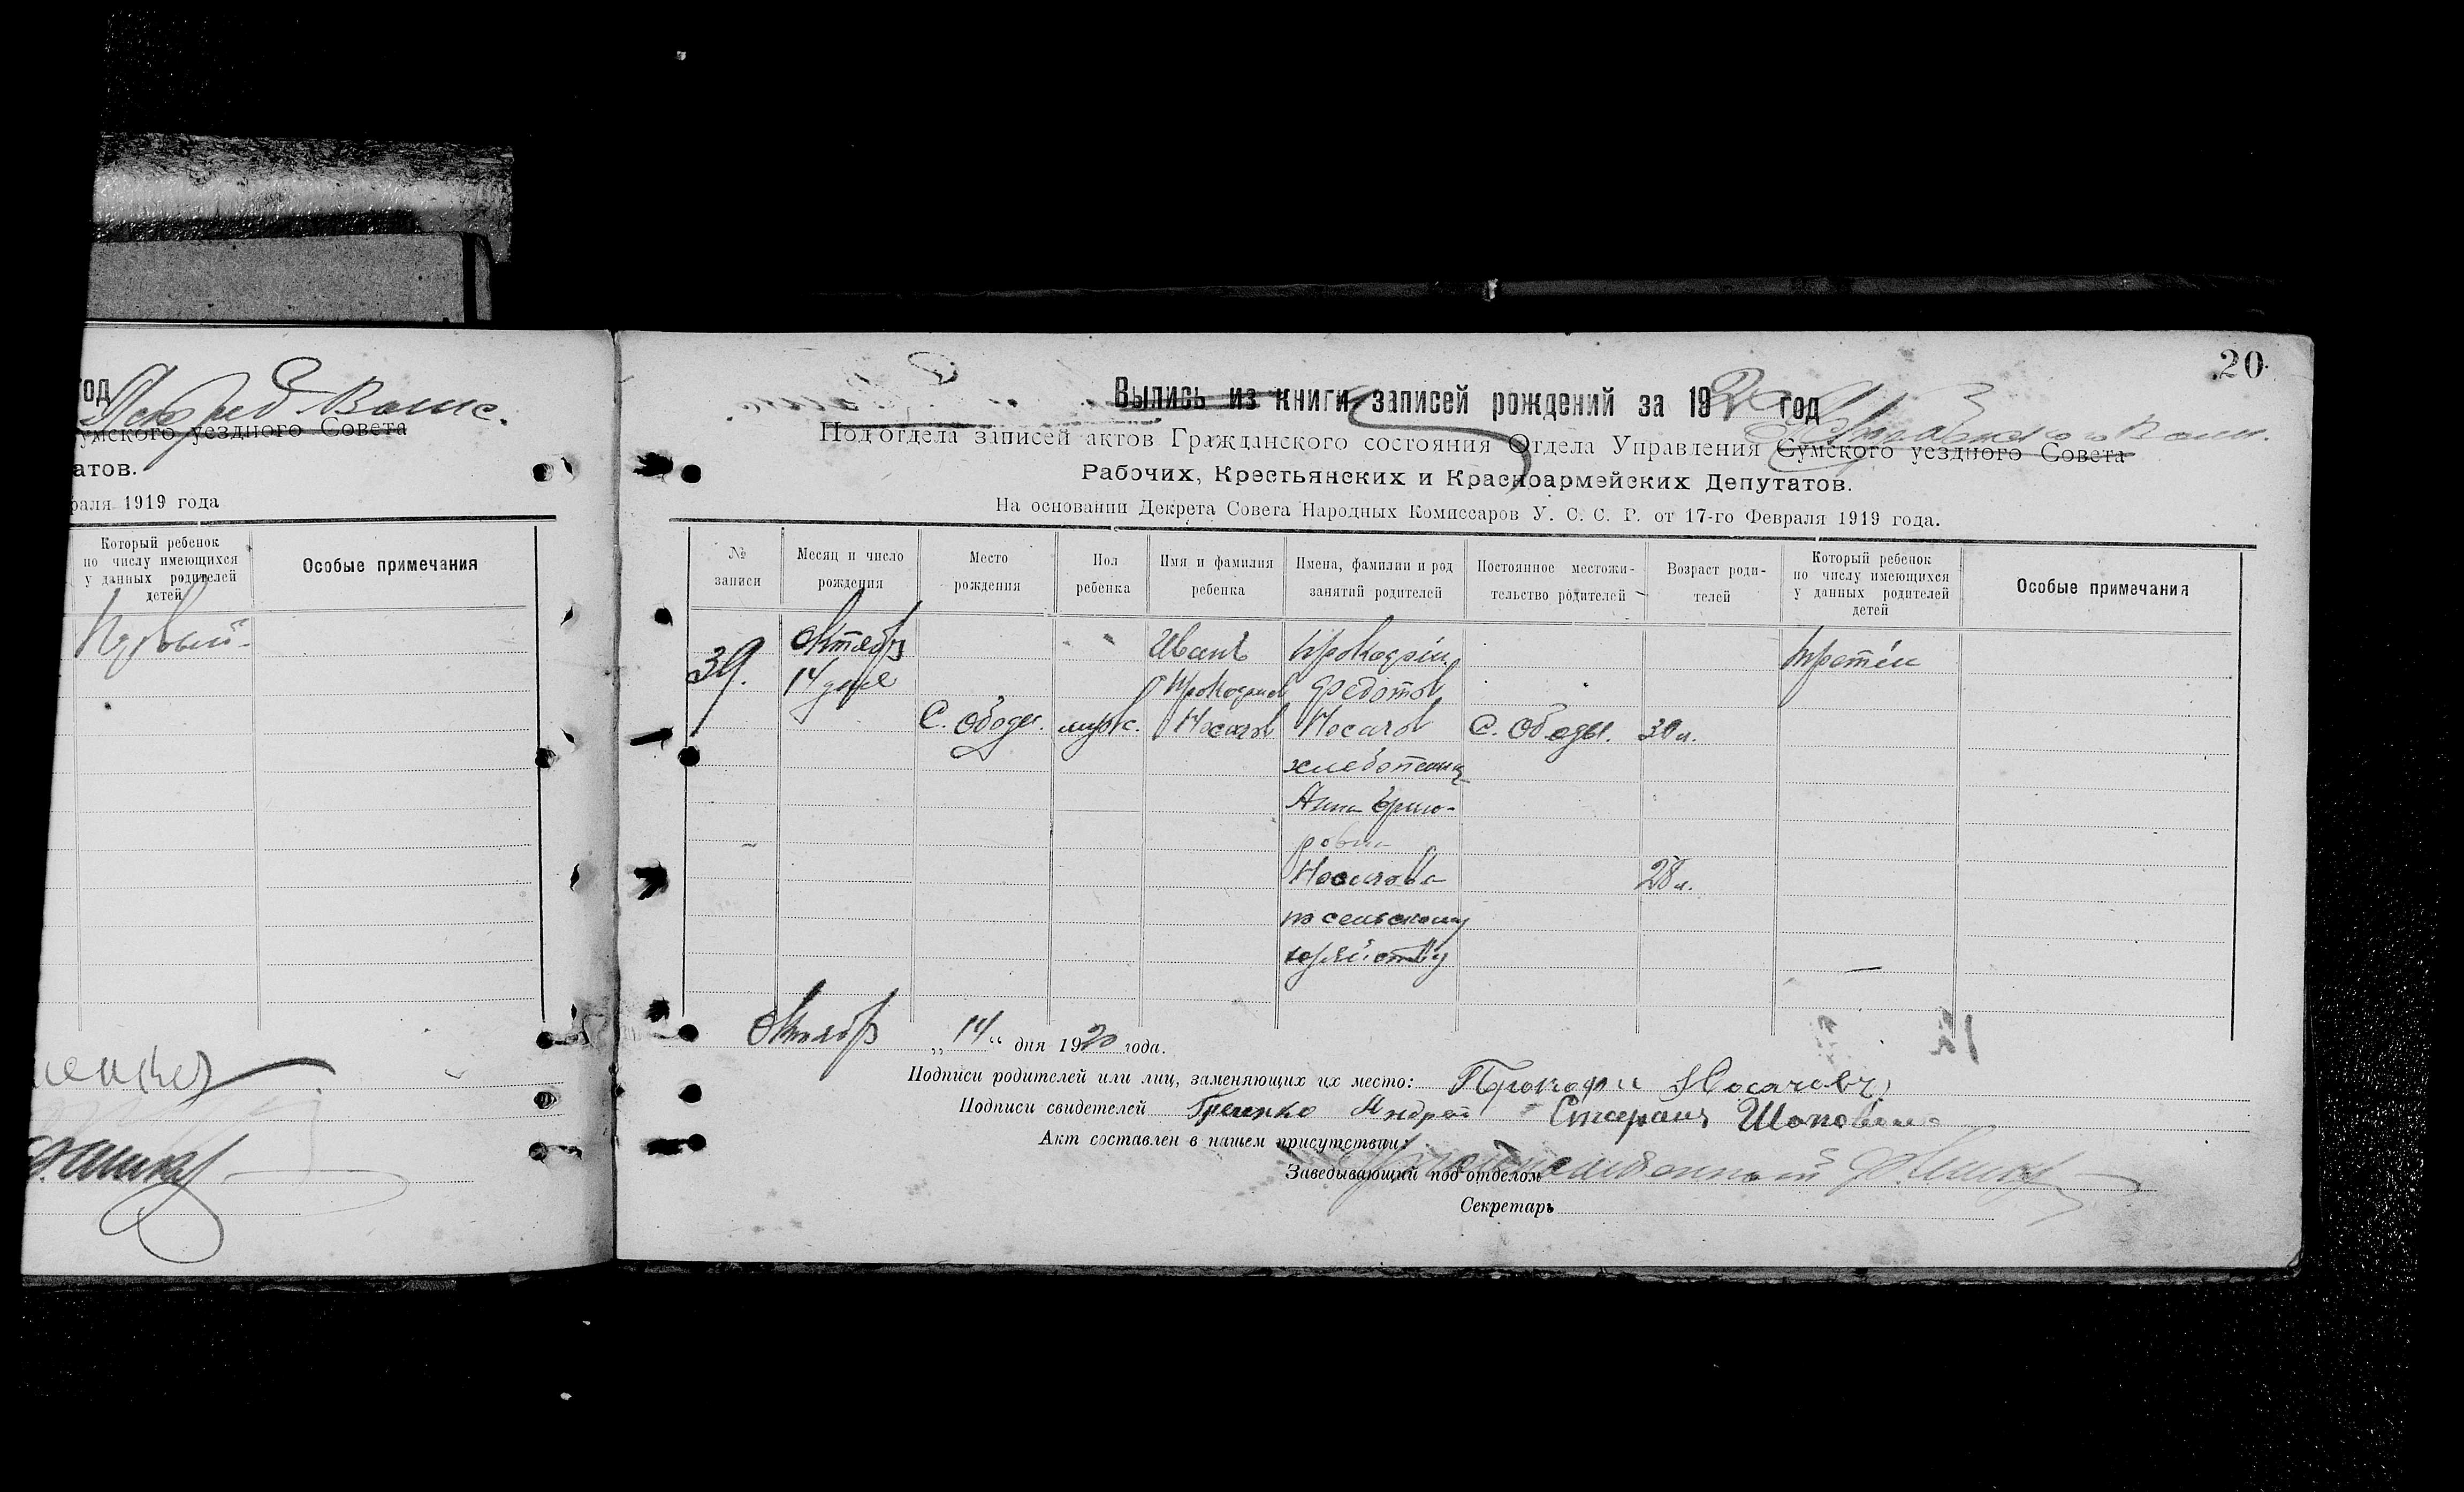 год
Вышс.
умского уездного Совета
атов.
раля 1919 года
Который ребенок
по числу имеющихся
у данных родителей
детей
Особые примечания
Первый
20
Выпись из книги записей рождений за 1920 год
Подотдела записей актов Гражданского состояния Отдела Управления Сумского уездного Совета
Рабочих, Крестьянских и Красноармейских Депутатов.
На основании Декрета Совета Народных Комиссаров У. С. С. Р. от 17-го Февраля 1919 года.
№
записи
Месяц и число
рождения
Место
рождения
Пол
ребенка
Имя и фамилия
ребенка
Имена, фамилии и род
занятий родителей
Постоянное местожи-
тельство родителей
Возраст роди-
телей
Который ребенок
по числу имеющихся
у данных родителей
детей
Особые примечания
39.
Октябр
14 дня
С. Ободы.
мужс.
Иванъ
Прокофиев
Носачов
Прокофій
Федотов
Носачов
хлебопашец
Анна Егрио-
ровна
Носачова
по сельскому
хозяйству
С. Ободы.
30 л.
28 л.
третій
Октябр „14“ дня 1920 года.
Подписи родителей или лиц, заменяющих их место: Прокофи Носачовъ
Подписи свидетелей Андрей Степан
Акт составлен в нашем присутствии:
Заведывающий под'отделом
Секретарь